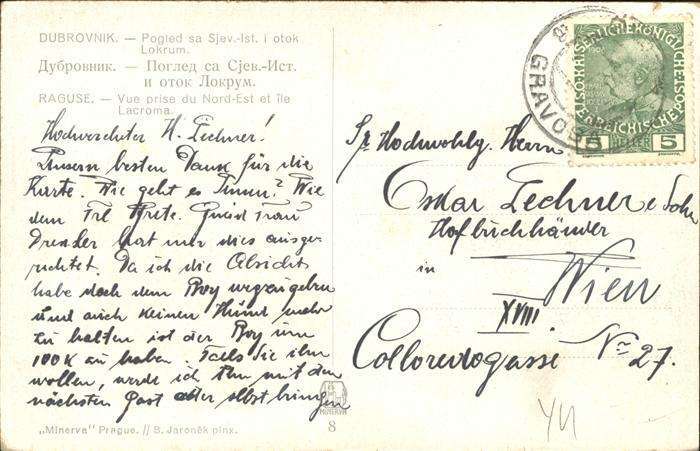 DUBROVNIK. — Pogled sa Sjev.-Ist. i otok
Lokrum.
Дубровник. — Поглед са Сјев.-Ист.
и оток Локрум.
RAGUSE. — Vue prise du Nord-Est et île
Lacroma.
Hochverehrter H. Lechner!
Unsern besten Dank für die
Karte. Wie geht es Ihnen? Wie
dem Frl Grete.
hat mir dies ausge-
richtet. Da ich die Absicht
habe doch den Boy wegzugeben
und auch keinen Hund mehr
zu halten ist der Boy um
100K zu haben. Falls Sie ihn
wollen, werde ich Ihn mit der
nächsten Post oder selbst bringen
„Minerva" Prague. // B. Jaroněk pinx.
MINERVA
8
GRAVOSA
5 HELLER 5
Sr Hochwohlg. Herrn
Oskar Lechner & Sohn
Hofbuchhänder
in
Wien
XVIII.
Colloredogasse No 27.